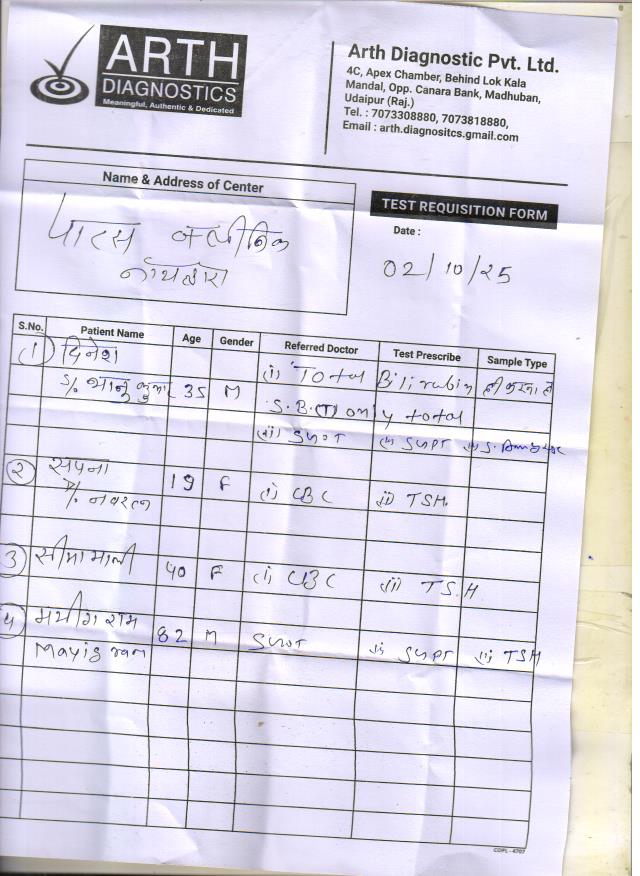 ARTH
DIAGNOSTICS
Meaningful, Authentic & Dedicated
Arth Diagnostic Pvt. Ltd.
4C, Apex Chamber, Behind Lok Kala
Mandal, Opp. Canara Bank, Madhuban,
Udaipur (Raj.)
Tel. : 7073308880, 7073818880,
Email : arth.diagnositcs.gmail.com
Name & Address of Center
पारस क्लीनिक
TEST REQUISITION FORM
Date :
02/10/25
S.No. Patient Name Age Gender Referred Doctor Test Prescribe Sample Type
1 दिनेश (i) Total Bilirubin ही करना है
S/o भानु कुमार 35 M S.B.(T) only total
(ii) SGOT (iii) SGPT
2 सपना 19 F (i) CBC (ii) TSH.
3 सीमा माली 40 F (i) CBC (ii) T.S.H
4 मयीग राम 82 M SGOT (ii) SGPT (iii) TSH
Mayig ram
CDPL - 4707